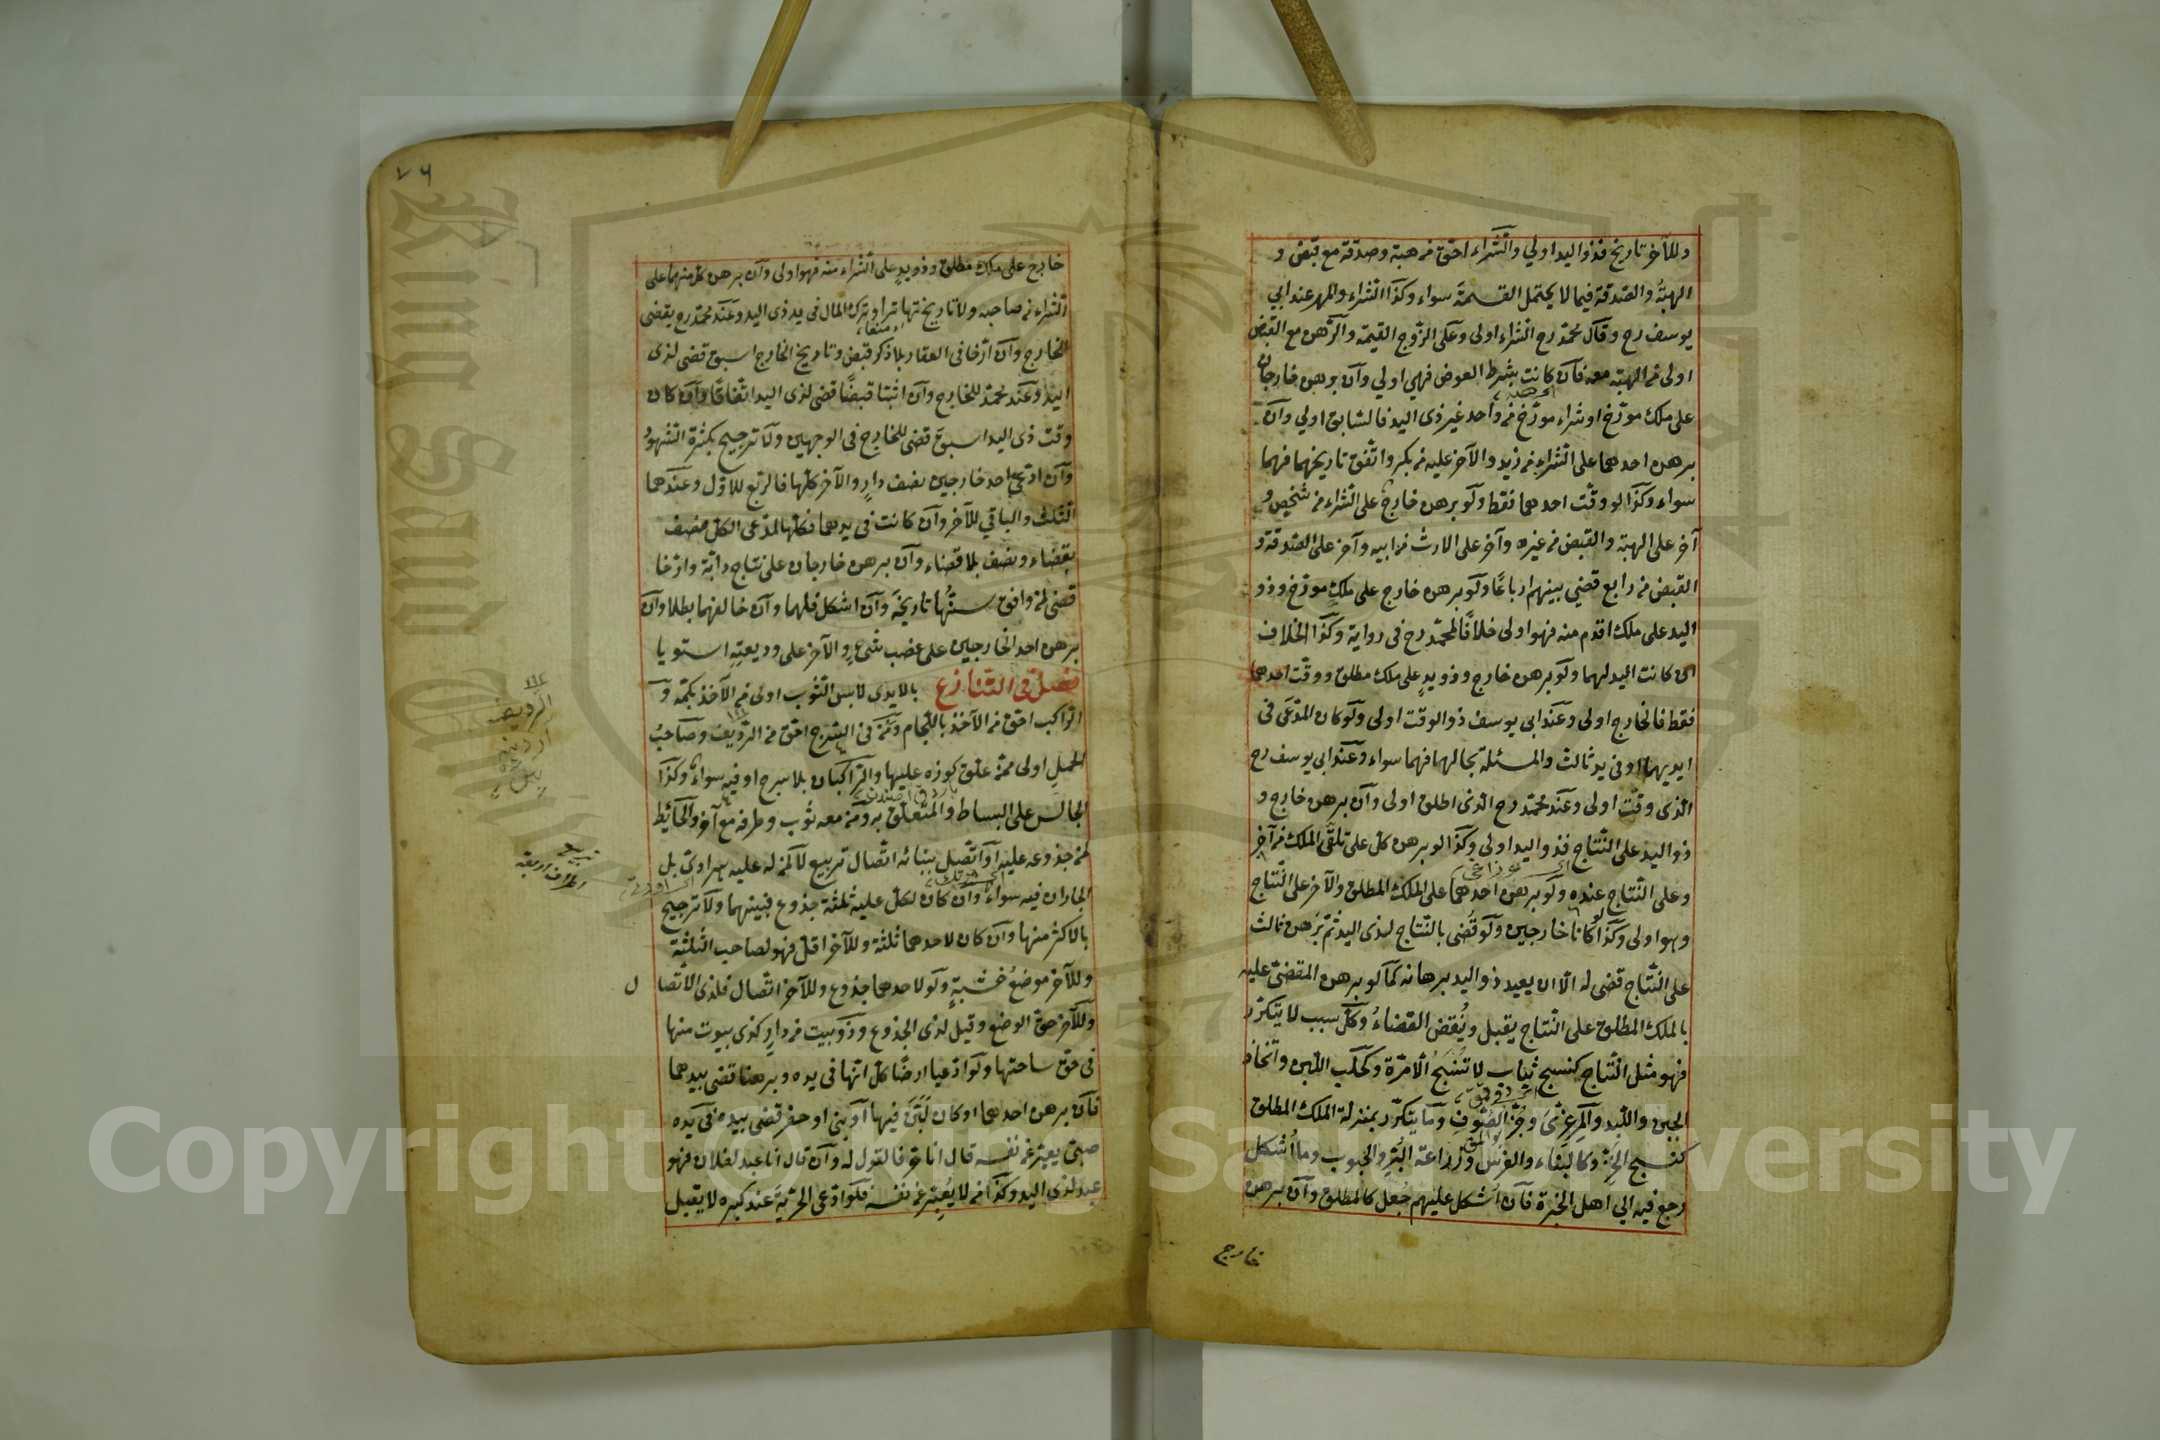 وللآخر تاريخ فذو اليد اولي والشراء احق من هبة وصدقة مع قبض و
الهبة والصدقة فيما لا يحتمل القسمة سواء وكذا الشراء والمهر عند ابي
يوسف رح وقال محمد رح الشراء اولى وعلى الزوج القيمة والرهن مع القبض
اولى من الهبة معه فان كانت بشرط العوض فهي اولي وان برهن خارجان
على ملك مورخ او شراء مورخ من واحد غير ذى اليد فالسابق اولي وان
برهن احدهما على الشراء من زيد والآخر عليه من بكر واتفق تاريخهما فهما
سواء وكذا لو وقت احدهما فقط ولو برهن خارج على الشراء من شخص و
آخر على الهبة والقبض من غيره وآخر على الارث من ابيه وآخر على الصدقة و
القبض من رابع قضي بينهم ارباعا ولو برهن خارج على ملك مورخ وذو
اليد على ملك اقدم منه فهو اولى خلافا لمحمد رح فى رواية وكذا الخلاف
ان كانت اليد لهما ولو برهن خارج وذو يد على ملك مطلق ووقت احدهما
فقط فالخارج اولى وعند ابى يوسف ذو الوقت اولى ولو كان المدعى فى
ايديهما او فى يد ثالث والمسئلة بحالها فهما سواء وعند ابى يوسف رح
الذى وقت اولى وعند محمد رح الذى اطلق اولى وان برهن خارج و
ذو اليد على النتاج فذو اليد اولى وكذا لو برهن كل على تلقى الملك من آخر
وعلى النتاج عنده ولو برهن احدهما على الملك المطلق والآخر على النتاج
وهو اولى وكذا لو كانا خارجين ولو قضى بالنتاج لذى اليد ثم برهن ثالث
على النتاج قضى له الا ان يعيد ذو اليد برهانه كما لو برهن المقضى عليه
بالملك المطلق على النتاج يقبل وينقض القضاء وكل سبب لا يتكرر
فهو مثل النتاج كنسج ثياب لا تنسج الا مرة وكحلب اللبن واتخاذ
الجبن واللبد والمرعزى وجز الصوف وما يتكرر بمنزلة الملك المطلق
كنسج الخز وكالبناء والغرس وزراعة البر والحبوب وما اشكل
رجع فيه الي اهل الخبرة فان اشكل عليهم جعل كالمطلق وان برهن
خارج
٧٦
خارج على ملك مطلق وذو يد على الشراء منه فهو اولى وان برهن كل منهما على
الشراء من صاحبه ولا تاريخ تهاترا وترك المال فى يد ذى اليد وعند محمد رح يقضى
للخارج وان ارخا فى العقار بلا ذكر قبض وتاريخ الخارج اسبق قضى لذى
اليد وعند محمد للخارج وان اثبتا قبضا قضى لذى اليد اتفاقا وان كان
وقت ذى اليد اسبق قضى للخارج فى الوجهين ولا ترجيح بكثرة الشهود
وان ادعى احد خارجين نصف دار والآخر كلها فالربع للاول وعندهما
الثلث والباقي للآخر وان كانت فى يدهما فكلها لمدعى الكل نصف
بقضاء ونصف بلا قضاء وان برهن خارجان على نتاج دابة وارخا
قضى لمن وافق سنها تاريخه وان اشكل فلهما وان خالفهما بطلا وان
برهن احد الخارجين على غصب شئ والآخر على وديعته استويا
فصل فى التنازع بالايدى لابس الثوب اولى من الآخذ بكمه و
الراكب احق من الآخذ باللجام ومن فى السرج احق من الرديف وصاحب
الحمل اولى ممن علق كوزه عليها والراكبان بلا سرج او فيه سواء وكذا
الجالس على البساط والمتعلق به ومن معه ثوب وطرفه مع آخر والحائط
لمن جذوعه عليه او اتصل ببنائه اتصال تربيع لا لمن له عليه هرادى بل
الجاران فيه سواء وان كان لكل عليه ثلثة جذوع فبينهما ولا ترجيح
بالاكثر منها وان كان لاحدهما ثلثة وللآخر اقل فهو لصاحب الثلثة
وللآخر موضع خشبته ولو لاحدهما جذوع وللآخر اتصال فلذى الاتصال
وللآخر حق الوضع وقيل لذى الجذوع وذو بيت من دار كذى بيوت منها
فى حق ساحتها ولو ادعيا ارضا كل انها فى يده وبرهنا قضى بيدهما
فان برهن احدهما او كان لبن فيها او بنى او حفر قضى بيده فى يده
صبى يعبر عن نفسه قال انا حر فالقول له وان قال انا عبد لفلان فهو
عبد لذى اليد وكذا من لا يعبر عن نفسه فلو ادعى الحرية عند كبره لا يقبل
King Saud University
1957
Copyright © King Saud University